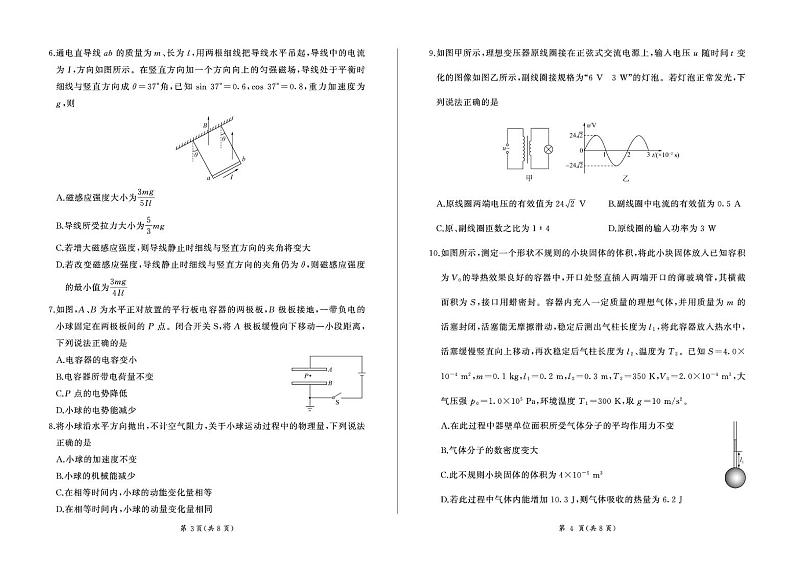 6.通电直导线 ab 的质量为 m、长为 l,用两根细线把导线水平吊起,导线中的电流
为 I,方向如图所示。在竖直方向加一个方向向上的匀强磁场,导线处于平衡时
细线与竖直方向成 θ=37°角,已知 sin 37°=0.6,cos 37°=0.8,重力加速度为
g,则
B
θ
θ
b
a
I
A.磁感应强度大小为3mg/5Il
B.导线所受拉力大小为5/3mg
C.若增大磁感应强度,则导线静止时细线与竖直方向的夹角将变大
D.若改变磁感应强度,导线静止时细线与竖直方向的夹角仍为 θ,则磁感应强度
的最小值为3mg/4Il
7.如图,A、B 为水平正对放置的平行板电容器的两极板,B 极板接地,一带负电的
小球固定在两极板间的 P 点。闭合开关 S,将 A 极板缓慢向下移动一小段距离,
下列说法正确的是
A.电容器的电容变小
B.电容器所带电荷量不变
C.P 点的电势降低
D.小球的电势能减少
A
P
B
S
8.将小球沿水平方向抛出,不计空气阻力,关于小球运动过程中的物理量,下列说法
正确的是
A.小球的加速度不变
B.小球的机械能减少
C.在相等时间内,小球的动能变化量相等
D.在相等时间内,小球的动量变化量相同
第 3 页(共 8 页)
9.如图甲所示,理想变压器原线圈接在正弦式交流电源上,输入电压 u 随时间 t 变
化的图像如图乙所示,副线圈接规格为“6 V 3 W”的灯泡。若灯泡正常发光,下
列说法正确的是
u
甲
u/V
24√2
0
-24√2
1 2 3 t/(×10⁻² s)
乙
A.原线圈两端电压的有效值为 24√2 V B.副线圈中电流的有效值为 0.5 A
C.原、副线圈匝数之比为 1∶4 D.原线圈的输入功率为 3 W
10.如图所示,测定一个形状不规则的小块固体的体积,将此小块固体放入已知容积
为 V₀的导热效果良好的容器中,开口处竖直插入两端开口的薄玻璃管,其横截
面积为 S,接口用蜡密封。容器内充入一定质量的理想气体,并用质量为 m 的
活塞封闭,活塞能无摩擦滑动,稳定后测出气柱长度为 l₁,将此容器放入热水中,
活塞缓慢竖直向上移动,再次稳定后气柱长度为 l₂、温度为 T₂。已知 S=4.0×
10⁻⁴ m²,m=0.1 kg,l₁=0.2 m,l₂=0.3 m,T₂=350 K,V₀=2.0×10⁻⁴ m³,大
气压强 p₀=1.0×10⁵ Pa,环境温度 T₁=300 K,取 g=10 m/s²。
A.在此过程中器壁单位面积所受气体分子的平均作用力不变
B.气体分子的数密度变大
C.此不规则小块固体的体积为 4×10⁻⁵ m³
D.若此过程中气体内能增加 10.3 J,则气体吸收的热量为 6.2 J
l₁
第 4 页(共 8 页)